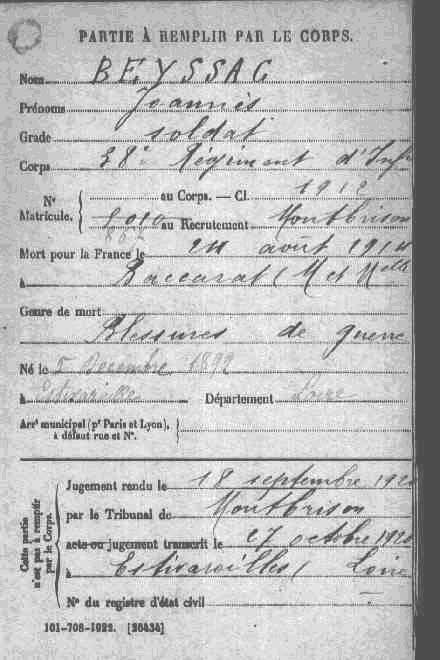 PARTIE À REMPLIR PAR LE CORPS.
Nom BEYSSAC
Prénoms Joannès
Grade soldat
Corps 38e Régiment d'Infie
N° Matricule. au Corps. — Cl. 1912
au Recrutement Montbrison
Mort pour la France le 24 août 1914
à Baccarat (M et Melle
Genre de mort
Blessures de guerre
Né le 5 Décembre 1892
à Estivareille Département Loire
Arrt municipal (pr Paris et Lyon),
à défaut rue et N°.
Cette partie n'est pas à remplir par le Corps.
Jugement rendu le 18 septembre 1920
par le Tribunal de Montbrison
acte ou jugement transcrit le 27 octobre 1920
à Estivareilles (Loire
N° du registre d'état civil —
101-708-1922. [26434]